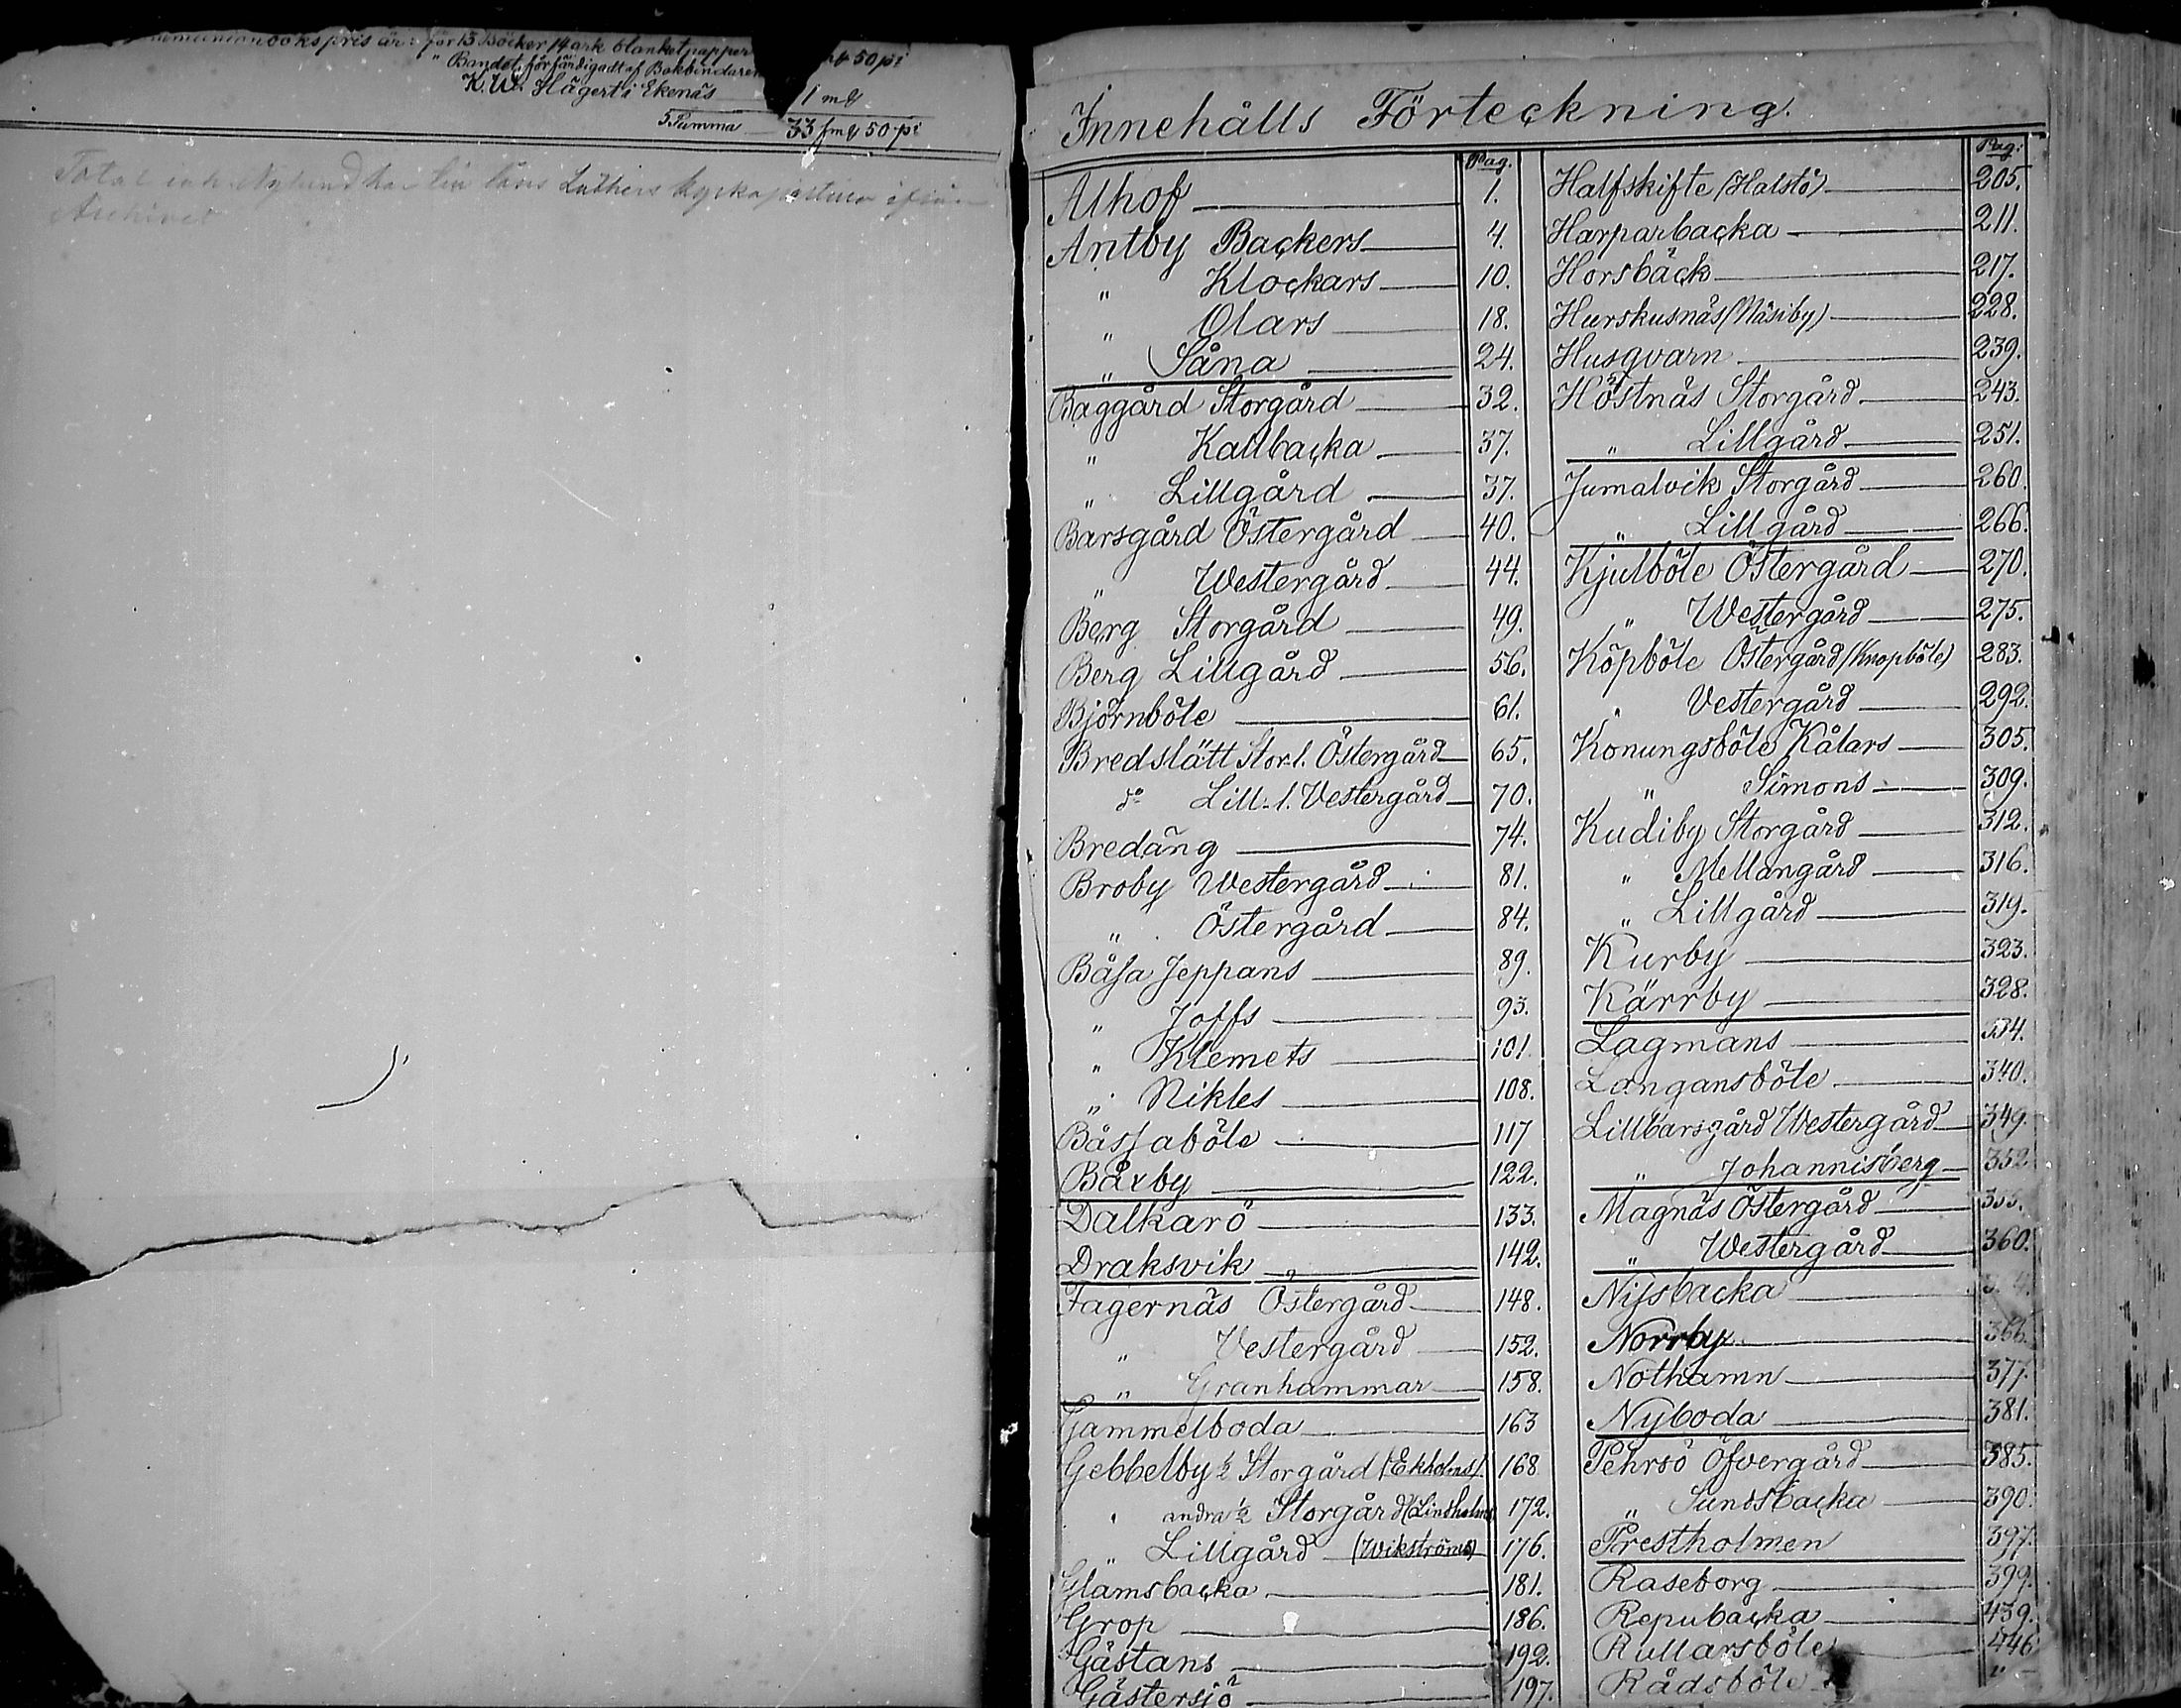 bokspris är: för 15 Böcker 14 ark blanketpapper 50 pi
" Bandet, förfärdigadt af Bokbindaren
K. W. Hägert i Ekenäs 1 mk
Summa 33 fmk 50 pi
Luthers
Archivet
Innehålls Förteckning.
Pag.
Alhof 1.
Antby Backers 4.
" Klockars 10.
" Olars 18.
" Såna 24.
Baggård Storgård 32.
" Kallbacka 37.
" Lillgård 37.
Barsgård Östergård 40.
" Westergård 44.
Berg Storgård 49.
Berg Lillgård 56.
Björnböle 61.
Bredslätt Stor-l. Östergård 65.
do Lill-l. Vestergård 70.
Bredäng 74.
Broby Westergård 81.
" Östergård 84.
Båsa Jeppans 89.
" Joffs 93.
" Klemets 101
" Nikles 108.
Båssaböle 117
Båxby 122.
Dalkarö 133.
Draksvik 142.
Fagernäs Östergård 148.
" Vestergård 152.
" Granhammar 158.
Gammelboda 163
Gebbelby ½ Storgård (Ekholms) 168
" andra ½ Storgård (Lindholms) 172.
" Lillgård (Wikströms) 176.
Glamsbacka 181.
Grop 186.
Gästans 192.
Gästersjö 197.
Pag:
Halfskifte (Halstö) 205.
Harparbacka 211.
Horsbäck 217.
Hurskusnäs (Näsiby) 228.
Husqvarn 239.
Höstnäs Storgård 243.
" Lillgård 251.
Jumalvik Storgård 260.
" Lillgård 266.
Kjulböle Östergård 270.
" Westergård 275.
Köpböle Östergård (Knopböle) 283.
" Vestergård 292.
Konungsböle Kålars 305.
" Simons 309.
Kudiby Storgård 312.
" Mellangård 316.
" Lillgård 319.
Kurby 323.
Kärrby 328.
Lagmans 334.
Langansböle 340.
Lillbarsgård Westergård 349.
" Johannisberg 352
Magnäs Östergård 355.
" Westergård 360.
Nissbacka
Norrby 366.
Nothamn 377.
Nyboda 381.
Pehrsö Öfvergård 385.
" Sundsbacka 390.
Prestholmen 397.
Raseborg 399.
Repubacka 439.
Rullarsböle 446
Rådsböle "